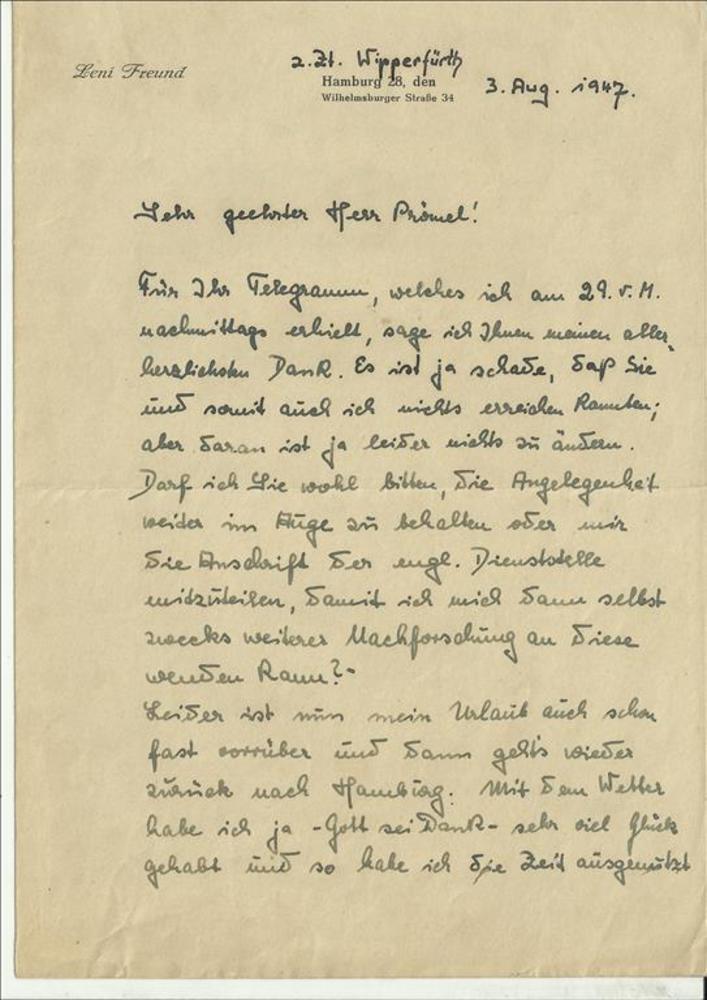 Leni Freund
z. Zt. Wipperfürth
Hamburg 28, den 3. Aug. 1947.
Wilhelmsburger Straße 34
Sehr geehrter Herr Prömel!
Für Ihr Telegramm, welches ich am 29. v. M.
nachmittags erhielt, sage ich Ihnen meinen aller-
herzlichsten Dank. Es ist ja schade, daß Sie
und somit auch ich nichts erreichen konnten;
aber daran ist ja leider nichts zu ändern.
Darf ich Sie wohl bitten, die Angelegenheit
weiter im Auge zu behalten oder mir
die Anschrift der engl. Dienststelle
mitzuteilen, damit ich mich dann selbst
zwecks weiterer Nachforschung an diese
wenden kann?-
Leider ist nun mein Urlaub auch schon
fast vorrüber und dann geht's wieder
zurück nach Hamburg. Mit dem Wetter
habe ich ja - Gott sei Dank - sehr viel Glück
gehabt und so habe ich die Zeit ausgenützt